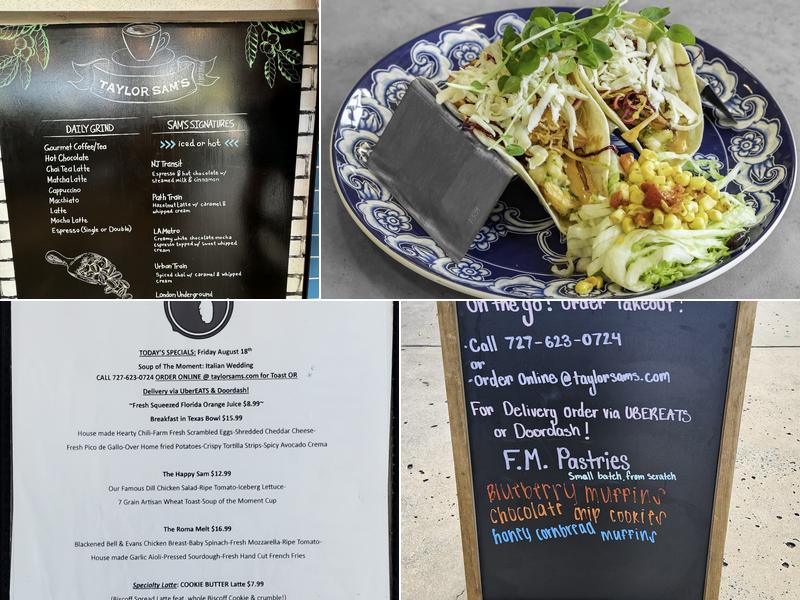 TAYLOR SAM'S
DAILY GRIND
Gourmet Coffee/Tea
Hot Chocolate
Chai Tea Latte
Matcha Latte
Cappuccino
Macchiato
Latte
Mocha Latte
Espresso (Single or Double)
SAM'S SIGNATURES
>>> iced or hot <<<
NJ Transit
Espresso & hot chocolate w/
steamed milk & cinnamon
Path Train
Hazelnut Latte w/ caramel &
whipped cream
LA Metro
Creamy white chocolate mocha
espresso topped w/ sweet whipped
cream
Urban Train
Spiced chai w/ caramel & whipped
cream
London Underground
TODAY'S SPECIALS: Friday August 18th
Soup of The Moment: Italian Wedding
CALL 727-623-0724 ORDER ONLINE @ taylorsams.com for Toast OR
Delivery via UberEATS & Doordash!
~Fresh Squeezed Florida Orange Juice $8.99~
Breakfast in Texas Bowl $15.99
House made Hearty Chili-Farm Fresh Scrambled Eggs-Shredded Cheddar Cheese-
Fresh Pico de Gallo-Over Home fried Potatoes-Crispy Tortilla Strips-Spicy Avocado Crema
The Happy Sam $12.99
Our Famous Dill Chicken Salad-Ripe Tomato-Iceberg Lettuce-
7 Grain Artisan Wheat Toast-Soup of the Moment Cup
The Roma Melt $16.99
Blackened Bell & Evans Chicken Breast-Baby Spinach-Fresh Mozzarella-Ripe Tomato-
House made Garlic Aioli-Pressed Sourdough-Fresh Hand Cut French Fries
Specialty Latte: COOKIE BUTTER Latte $7.99
(Biscoff Spread Latte feat. whole Biscoff Cookie & crumble!)
On the go? Order Takeout!
-Call 727-623-0724
or
-Order Online @taylorsams.com
For Delivery order via UBEREATS
or Doordash!
F.M. Pastries
Small batch, from scratch
Blueberry muffins
chocolate chip cookies
honey cornbread muffins